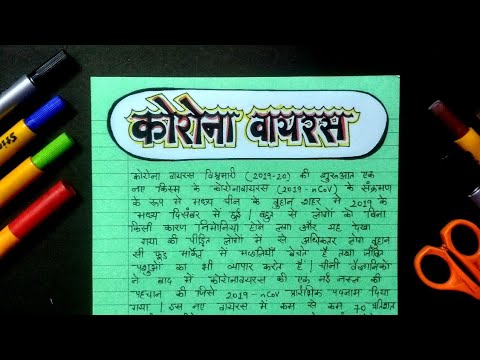 कोरोना वायरस
कोरोना वायरस विश्वमारी (2019-20) की शुरूआत एक
नए किस्म के कोरोनावायरस (2019-nCoV) के संक्रमण
के रूप में मध्य चीन के वुहान शहर में 2019 के
मध्य दिसंबर में हुई। बहुत से लोगों को बिना
किसी कारण निमोनिया होने लगा और यह देखा
गया की पीड़ित लोगों में से अधिकतर लोग वुहान
सी फूड मार्केट में मछलियाँ बेचते हैं तथा जीवित
पशुओं का भी व्यापार करते हैं। चीनी वैज्ञानिकों
ने बाद में कोरोनावायरस की एक नई नस्ल की
पहचान की जिसे 2019-nCoV प्रारंभिक पदनाम दिया
गया। इस नए वायरस में कम से कम 70 प्रतिशत